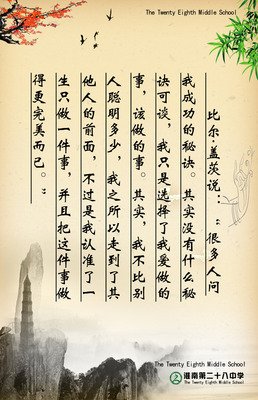 The Twenty Eighth Middle School
比尔·盖茨说：“很多人问
我成功的秘诀。其实没有什么秘
诀可谈，我只是选择了我爱做的
事，该做的事。其实，我不比别
人聪明多少，我之所以走到了其
他人的前面，不过是我认准了一
生只做一件事，并且把这件事做
得更完美而已。”
The Twenty Eighth Middle School
淮南第二十八中学
The Twenty Eighth Middle School